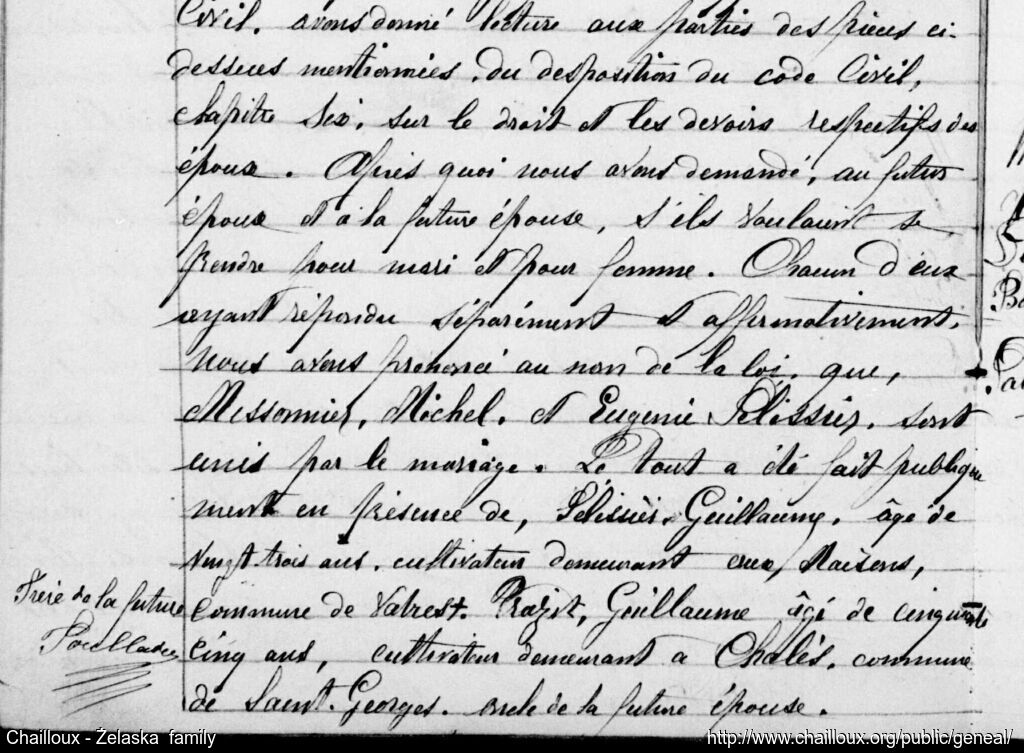 Civil. avons donné lecture aux parties des pièces ci-
dessues mentionnées, du desposition du code Civil,
chapitre Six, sur le droit et les devoirs respectifs des
époux. Après quoi nous avons demandé, au futur
époux et a la future épouse, s'ils voulaient se
prendre pour mari et pour femme. Chacun d'eux
ayant répondu séparément et affirmativement,
nous avons prononcé au nom de la loi, que,
Messonnier, Michel, et Eugenie Pélissier, sont
unis par le mariage. Le tout a été fait publique
ment en présence de, Pélissier, Guillaume, âgé de
vingt trois ans, cultivateur demeurant aux Maisons,
commune de Guillaume âgé de cinquante
Frère de la future
cinq ans, cultivateur demeurant a Chalés, commune
de Saint-Georges, oncle de la future épouse.
Chailloux - Żelaska family
http://www.chailloux.org/public/geneal/